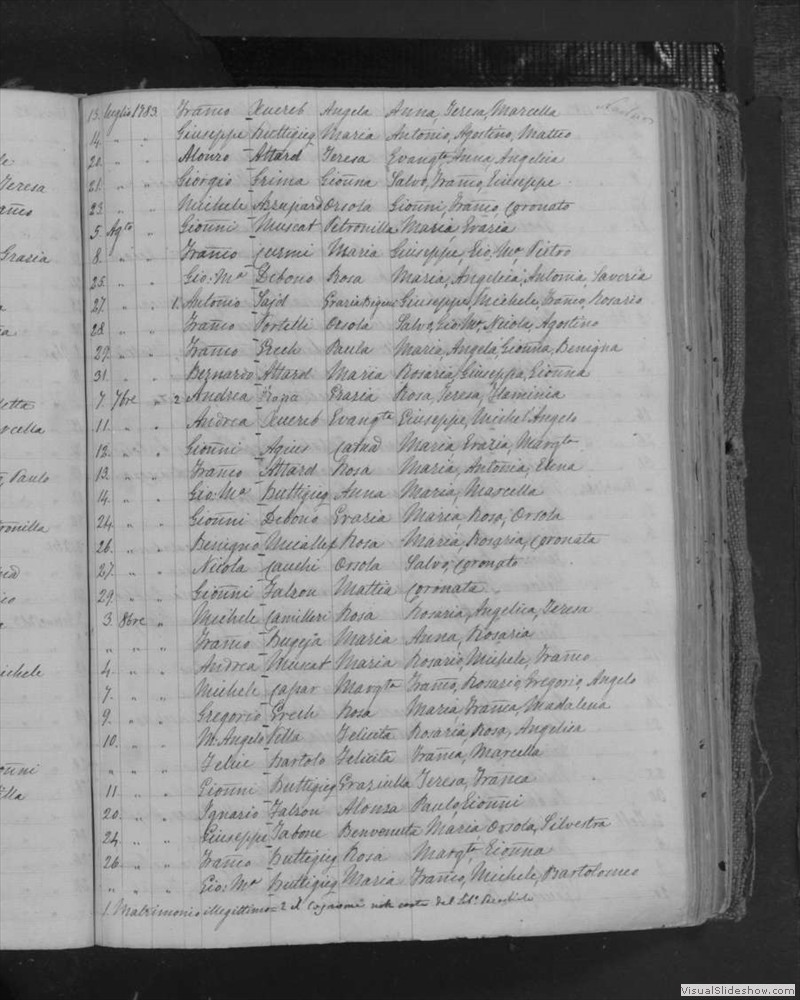 13. Luglio 1783 Franco Xuereb Angela Anna, Teresa, Marcella
14. " " Giuseppe Buttigieg Maria Antonio, Agostino, Matteo
20. " " Alonzo Attard Teresa Evangta, Anna, Angelica
21. " " Giorgio Grima Gionna Salvo, Franco, Giuseppe
23. " " Michele Azzupard Orsola Gionni, Franco, Coronato
5. Agto " Gionni Muscat Petronilla Maria Grazia
8. " " Franco Curmi Maria Giuseppe, Gio: Ma, Pietro
25. " " Gio: Ma Debono Rosa Maria, Angelica, Antonia, Saveria
27. " " 1. Antonio Sajd Grazia Giuseppe, Michele, Franco, Rosario
28. " " Franco Portelli Orsola Salvo, Gio: Ma, Nicola, Agostino
29. " " Franco Grech Paula Maria, Angela, Gionna, Benigna
31. " " Bernardo Attard Maria Rosaria, Giuseppa, Gionna
7. 7bre " 2 Andrea Grazia Rosa, Teresa, Flaminia
11. " " Andrea Xuereb Evangta Giuseppe, Michel'Angelo
12. " " Gionni Agius Catna Maria Grazia, Margta
13. " " Franco Attard Rosa Maria, Antonia, Elena
14. " " Gio: Ma Buttigieg Anna Maria, Marcella
24. " " Gionni Debono Grazia Maria Rosa, Orsola
26. " " Benigno Micallef Rosa Maria, Rosaria, Coronata
27. " " Nicola Cauchi Orsola Salvo, Coronato
29. " " Gionni Falzon Mattia Coronata
3. 8bre " Michele Camilleri Rosa Rosaria, Angelica, Teresa
" " " Franco Bugeja Maria Anna, Rosaria
4. " " Andrea Muscat Maria Rosario, Michele, Franco
7. " " Michele Capar Margta Franco, Rosario, Gregorio, Angelo
9. " " Gregorio Grech Rosa Maria, Franca, Madalena
10. " " M. Angelo Vella Felicita Rosaria, Rosa, Angelica
" " " Felice Bartolo Felicita Franca, Marcella
11. " " Gionni Buttigieg Graziulla Teresa, Franca
20. " " Ignazio Falzon Alonza Paulo, Gionni
24. " " Giuseppe Tabone Benvenuta Maria Orsola, Silvestra
26. " " Franco Buttigieg Rosa Margta, Gionna
" " " Gio: Ma Buttigieg Maria Franco, Michele, Bartolomeo
1. Matrimonio illegittimo = 2 il Cognome non costa del
Teresa
Grazia
Paulo
VisualSlideshow.com